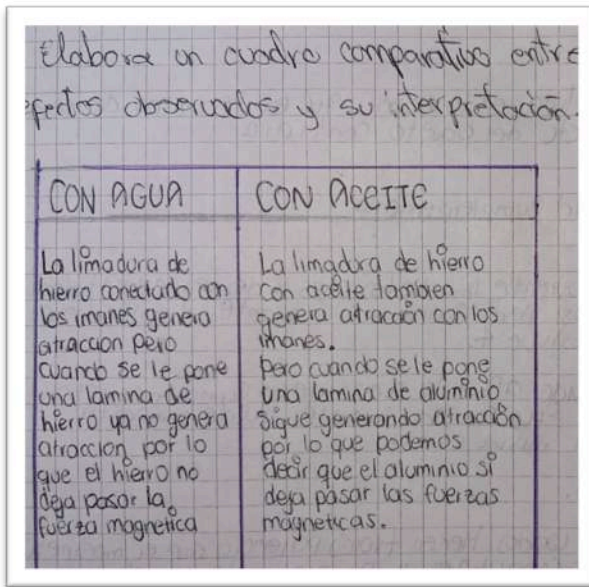 Elabora un cuadro comparativo entre
efectos observados y su interpretación.
CON AGUA
La limadura de
hierro conectado con
los imanes genera
atraccion pero
cuando se le pone
una lamina de
hierro ya no genera
atraccion por lo
que el hierro no
deja pasar la
fuerza magnetica
CON ACEITE
La limadura de hierro
con aceite tambien
genera atracción con los
imanes.
Pero cuando se le pone
una lamina de aluminio
sigue generando atracción
por lo que podemos
decir que el aluminio si
deja pasar las fuerzas
magneticas.